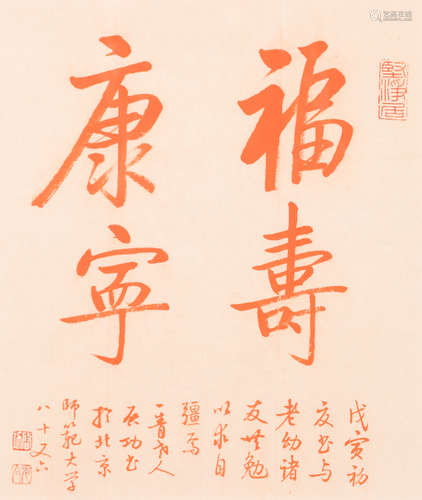 福壽
康寧
堅淨居
戊寅初
夏书与
老幼諸
友共勉
以求自
彊焉
人
启功书
於北京
師範大学
八十又六